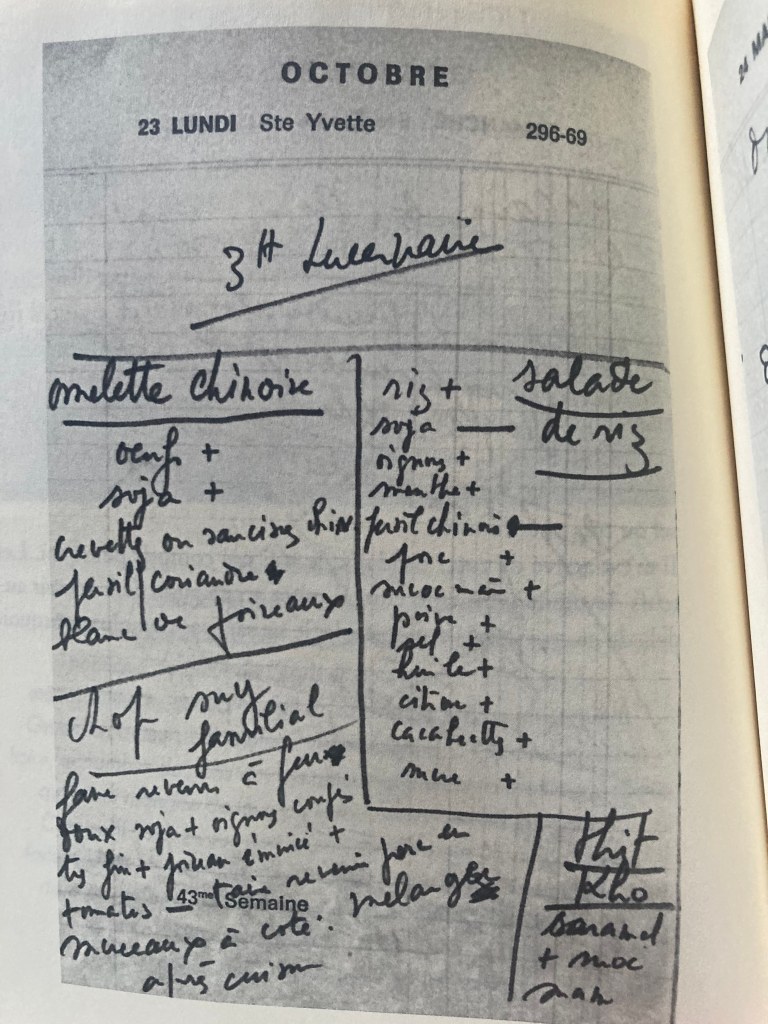 OCTOBRE
23 LUNDI Ste Yvette 296-69
3H Lucernaire
omelette chinoise
oeufs +
soja +
crevettes ou saucisses chin
persil/coriandre
blanc de poireaux
chop suy
familial
faire revenir à feu
doux soja + oignons coupés
très fin + poireau émincé +
tomates — faire revenir porc en
43me Semaine
morceaux à coté. mélanger
après cuisson
salade
de riz
riz +
soja —
oignons +
menthe +
persil chinois —
porc +
nuoc mam +
poivre +
sel +
huile +
citron +
cacahuettes +
sucre +
thit
kho
caramel
+ nuoc
mam
24 MA